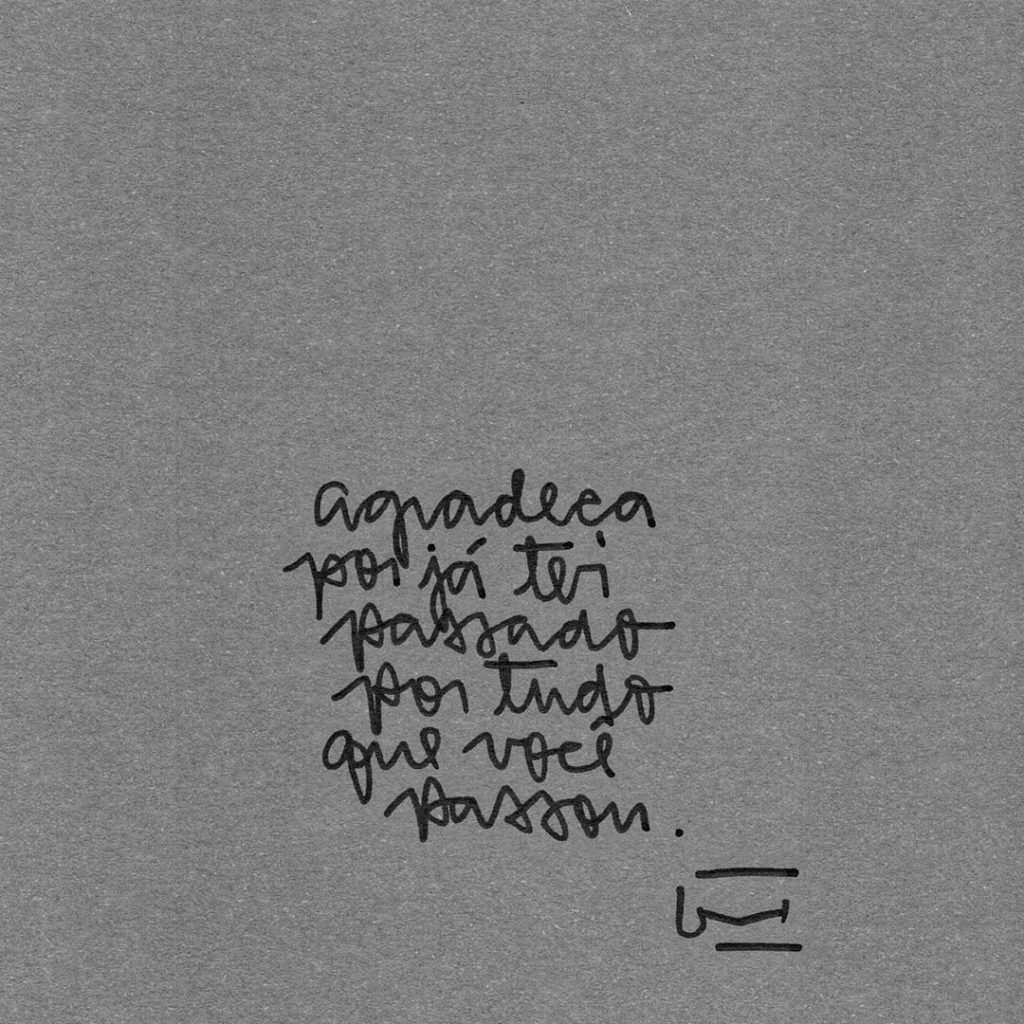 agradeça
por já ter
passado
por tudo
que você
passou.